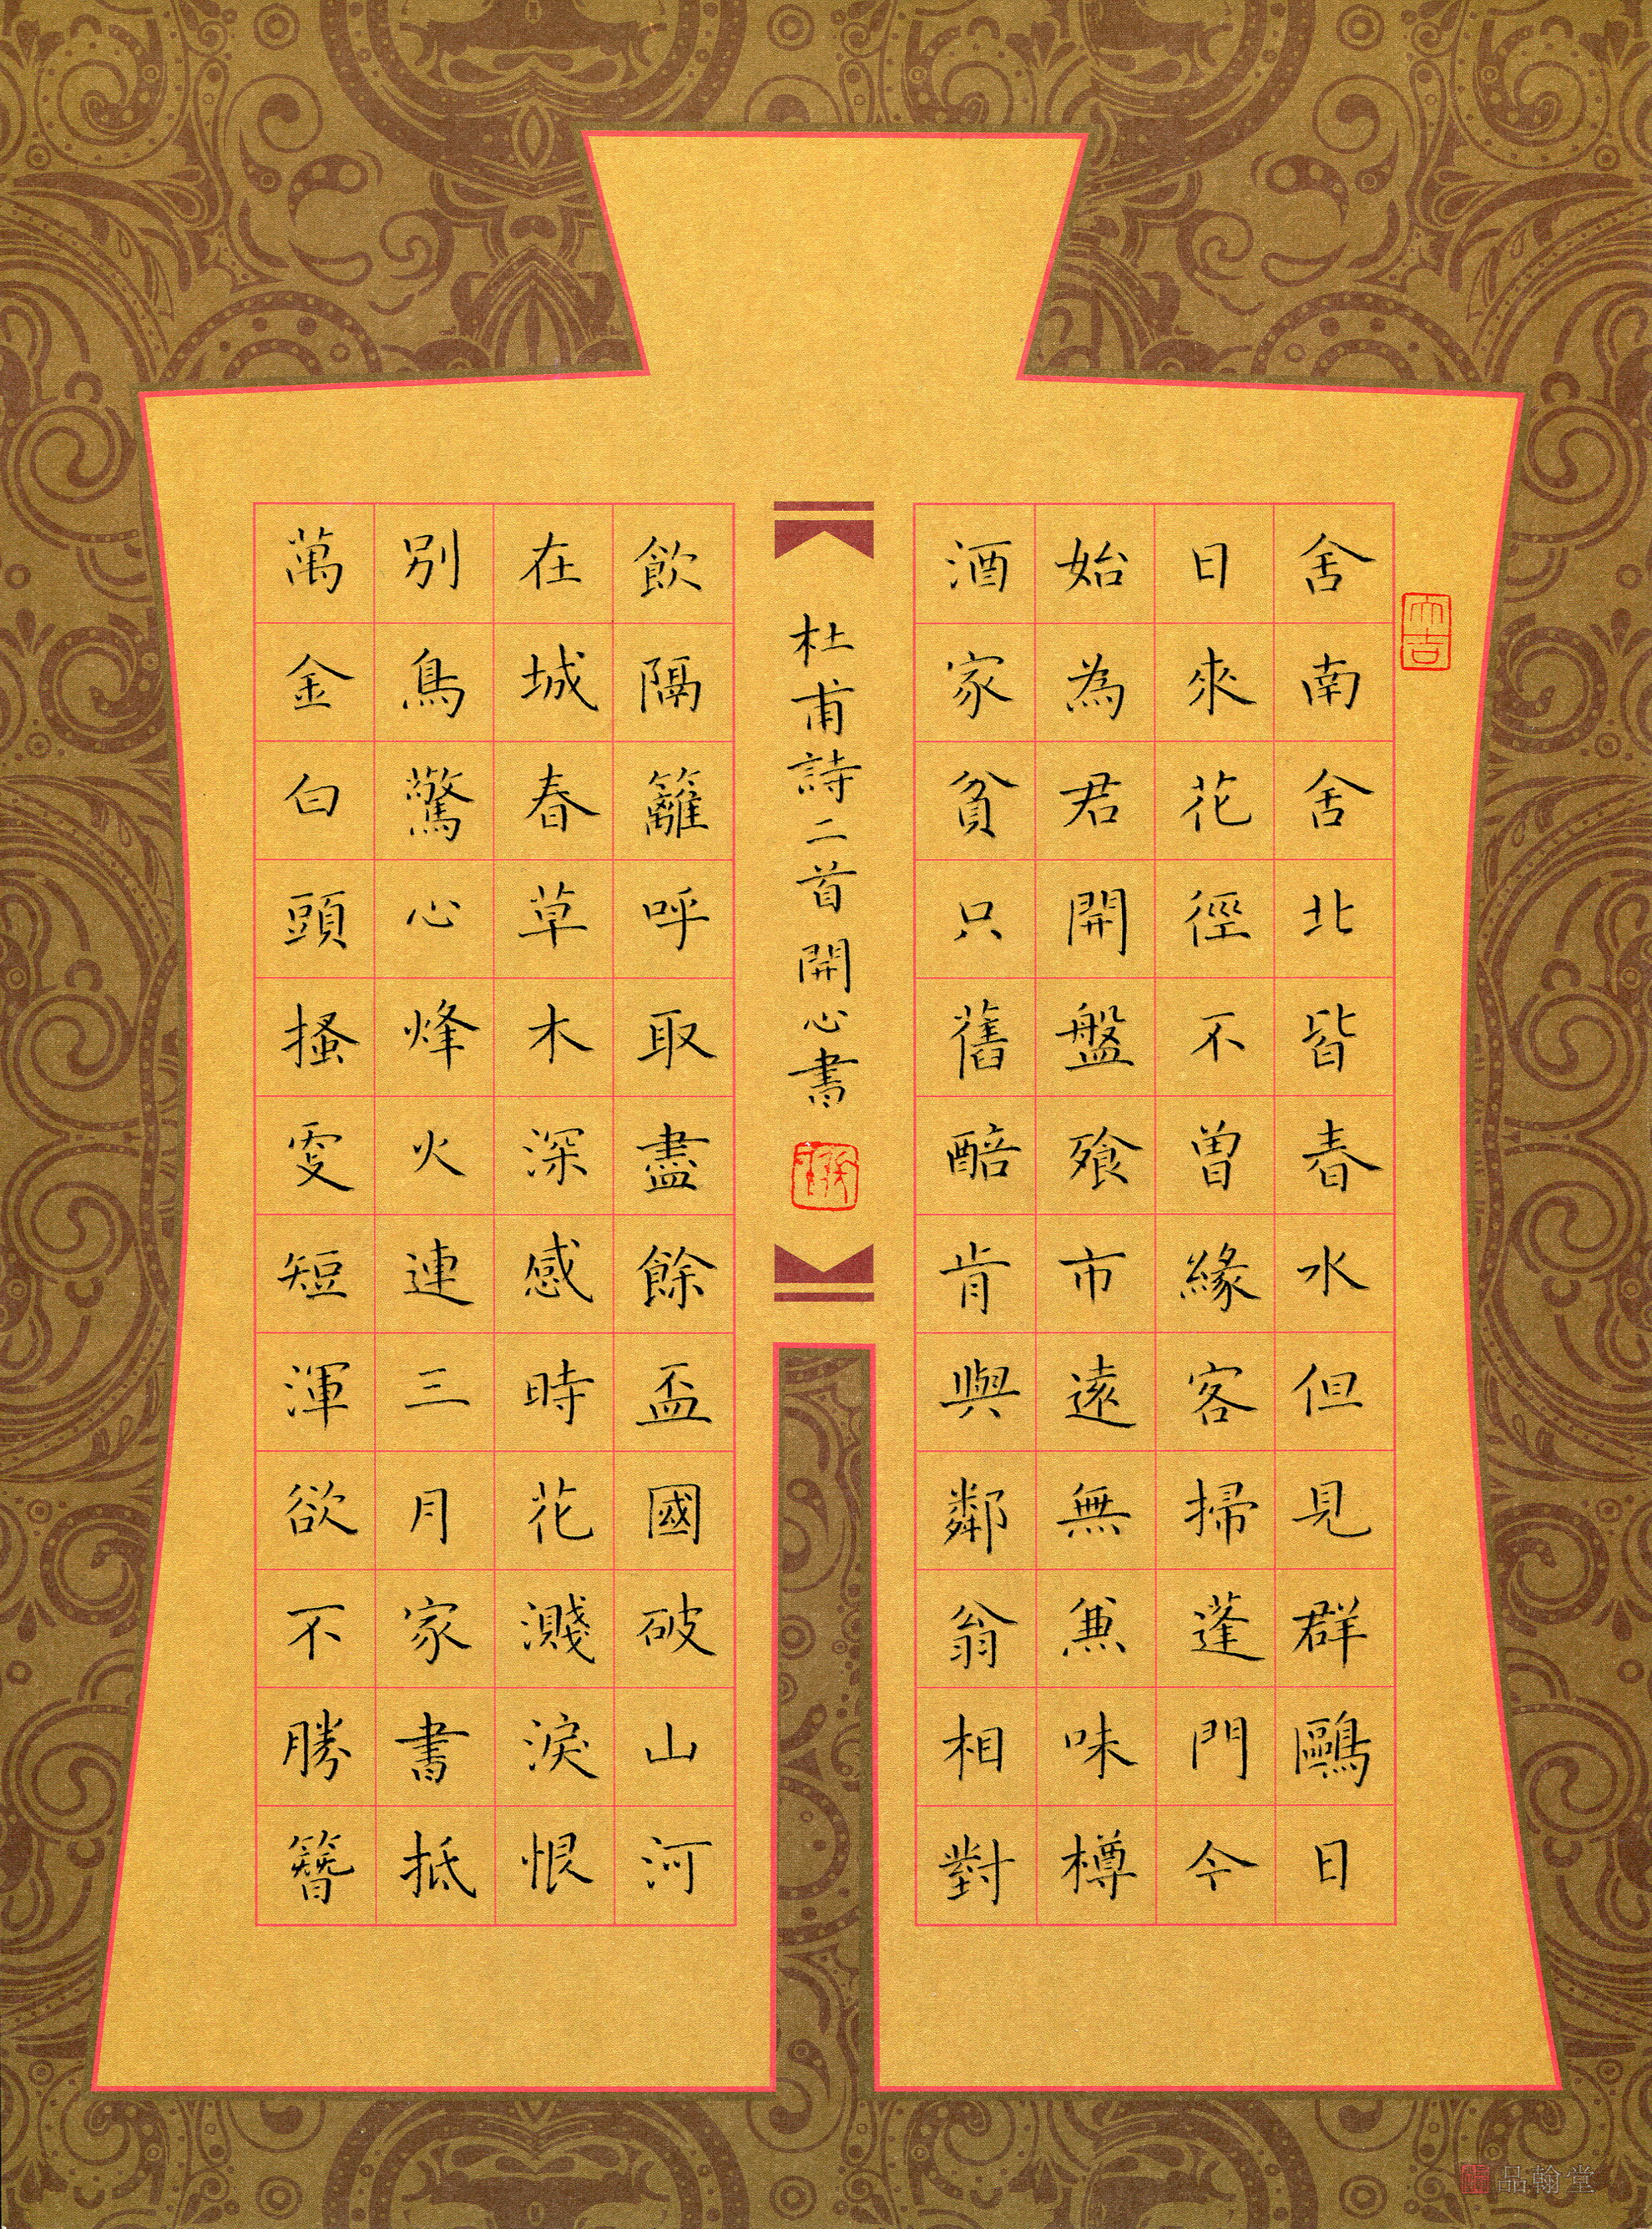 大吉
舍南舍北皆春水但見群鷗日
日來花徑不曾緣客掃蓬門今
始為君開盤飱市遠無兼味樽
酒家貧只舊醅肯與鄰翁相對
杜甫詩二首開心書
飲隔籬呼取盡餘盃國破山河
在城春草木深感時花濺淚恨
別鳥驚心烽火連三月家書抵
萬金白頭搔更短渾欲不勝簪
品翰堂